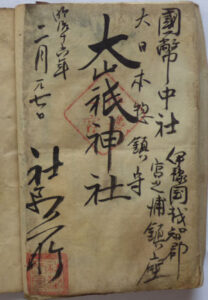 國幣中社
伊豫国越智郡
宮之浦鎮座
大日本惣鎮守
大山祇神社
明治十六年
二月元七日
社務所